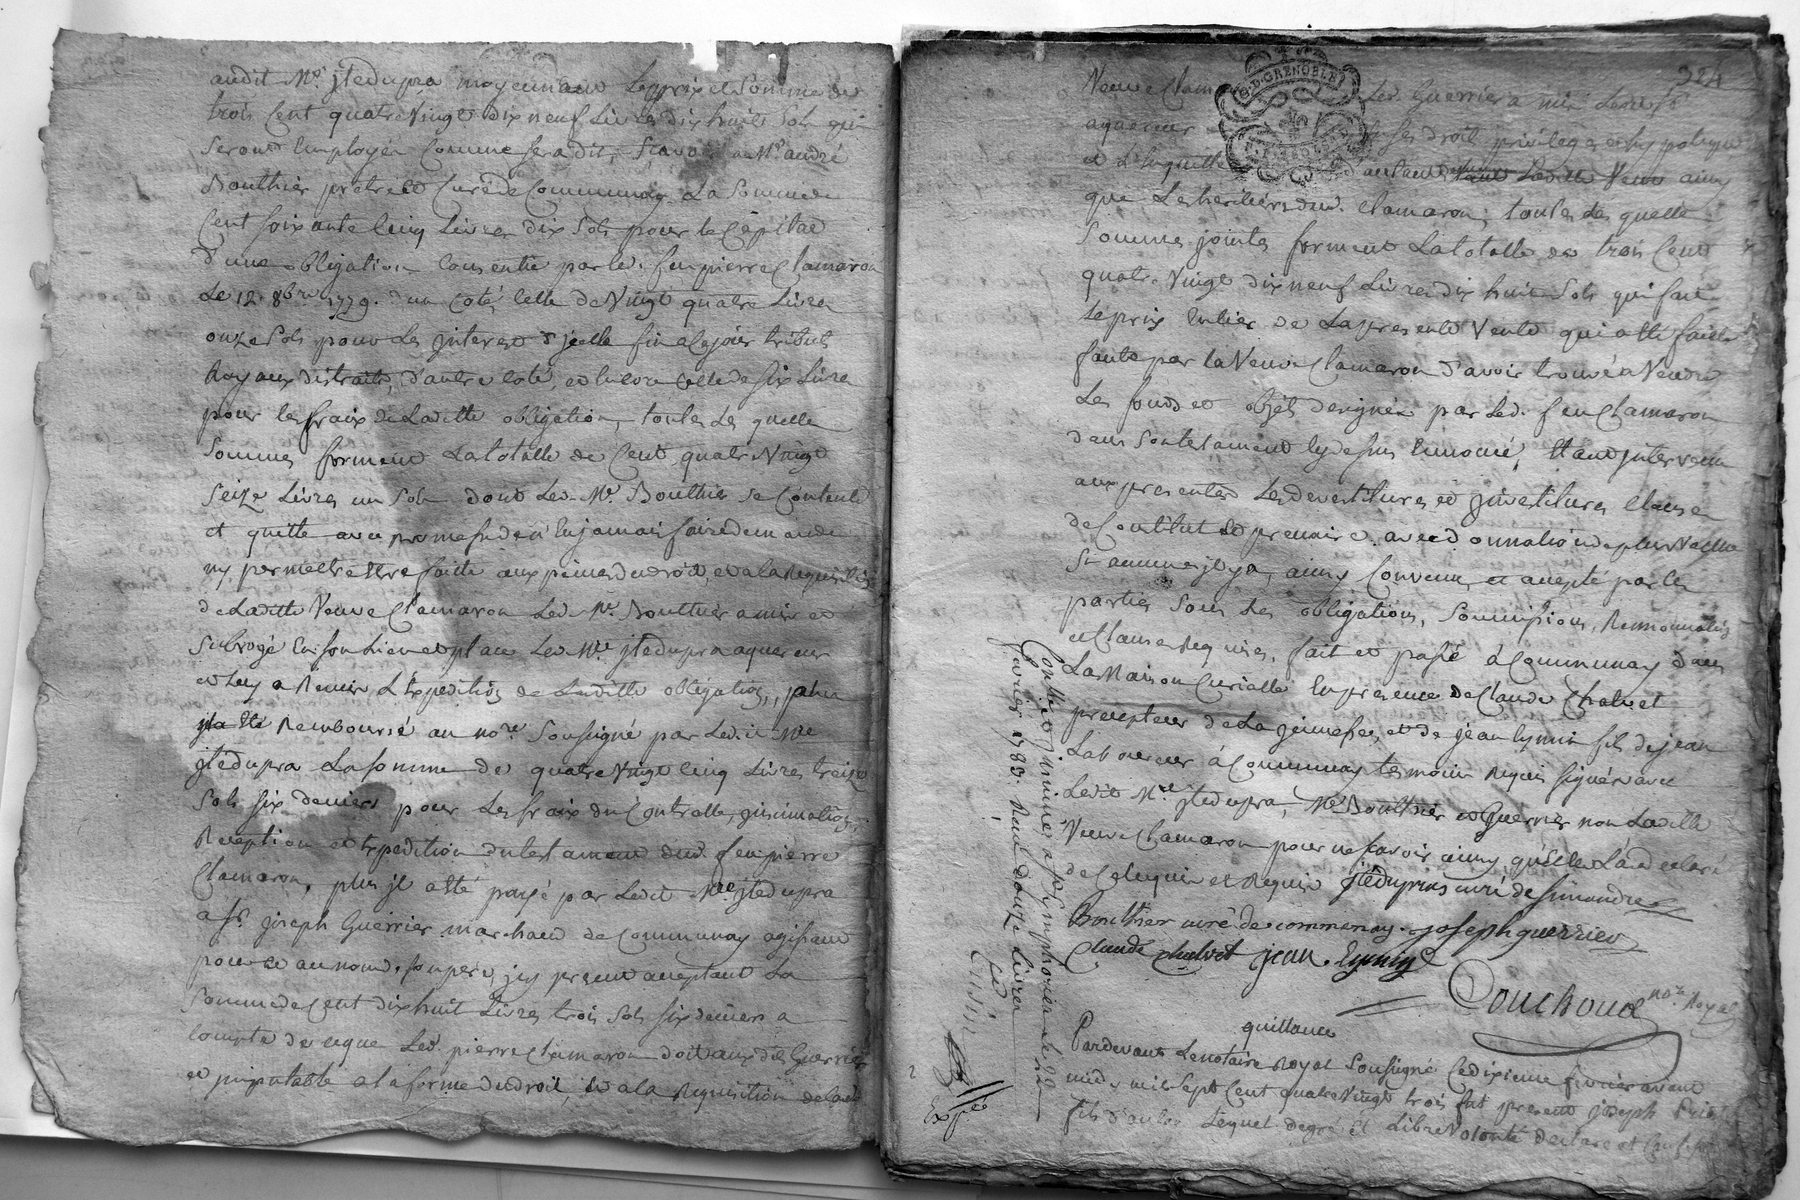 audit Mre jtedupra moyennant le prix et somme de
trois cent quatre vingt dix neuf Livres dix huit sols qui
seront Employés comme sera dit, scavoir a Mre andré
Bouthier pretre et curé de Communay La somme de
cent soixante cinq Livres dix sols pour le capital
d'une obligation consentie par led. feu pierre Clamaron
Le 12. 8bre 1779. d'un coté celle de vingt quatre Livres
onze sols pour les jnterest d'jcelle fin a ce jour tributs
Royaux distraits, d'autre coté, et encore celle de six Livres
pour les fraix de Laditte obligation, toutes les quelle
sommes forment La totalle de cent quatre vingt
seize Livres un sols dont led. Mre Bouthier se contente
et quitte avec promesse de n'en jamais faire demande
ny permettre Etre faite aux peines du droit, et a la Requisition
de Laditte Veuve Clamaron led. Mre Bouthier a mis et
subrogé En son Lieu et place led. Mre jtedupra aquereur
et luy a Remis L'Expedition de Laditte obligation, plus
jl a été Remboursé au nore soussigné par ledit Mre
jtédupra La somme de quatre vingt cinq Livres treize
sols six deniers pour les fraix du Controlle, jnsinuation,
Reception et Expedition du testament dud. feu pierre
Clamaron, plus jl a été payé par ledit Mre jtedupra
a sr joseph Guerrier marchand de Communay agissant
pour et au nom de son pere, jcy present acceptant La
somme de cent dix huit Livres trois sols six deniers a
compte de ce que led. pierre Clamaron doit aux dits Guerrier
et jmputable a la forme du droit, et a la Requisition de lad.
224
G. D. GRENOBLE
Veuve Clamaron led. Guerrier a mis
aquereur ses droit privileges et hypoteque
et L'En quitte d'autant Laditte Veuve ainsy
que Les heritiers dud. Clamaron; toutes les quelle
sommes jointes forment La totalle de trois cent
quatre vingt dix neuf Livres dix huit sols qui fait
le prix Entier de La presente Vente qui a été faitte
faute par la Veuve Clamaron d'avoir trouvé a Vendre
Les fonds et objets designés par led. feu Clamaron
dans son testament cy dessus Enoncé, Etant jntervenu
aux presentes les devestitures et jnvestitures clause
de Constitut et precaire avec donnation de plus Vallue
sy aucune jl y a, ainsy convenu et accepté par les
parties sous les obligations, soumissions, Renonciations
et Clauses Requises, fait et passé à Communay dans
La Maison Curialle En presence de Claude Chalvet
precepteur de La jeunesse, et de jean Eymin fils de jean
Laboureur à Communay temoins Requis signés avec
Ledit Mre jtedupra, Mre Bouthier et Guerrier non Laditte
Veuve Clamaron pour ne scavoir ainsy qu'elle L'a declaré
de ce Enquise et Requise jtéduprat curé de simandre
Bouthier curé de commenay. joseph guerrier
Claude Chalvet jean Eymin
Couchoud nore Royal
Controllé et jnsinué a st simphorien le 22
fevrier 1783. Reçu douze Livres
Expée
quittance
Pardevant Le notaire Royal soussigné Ce dixieme fevrier avant
midy mil sept cent quatre vingt trois fut present joseph
fils d'autre Lequel de gré et Libre volonté declare et confesse